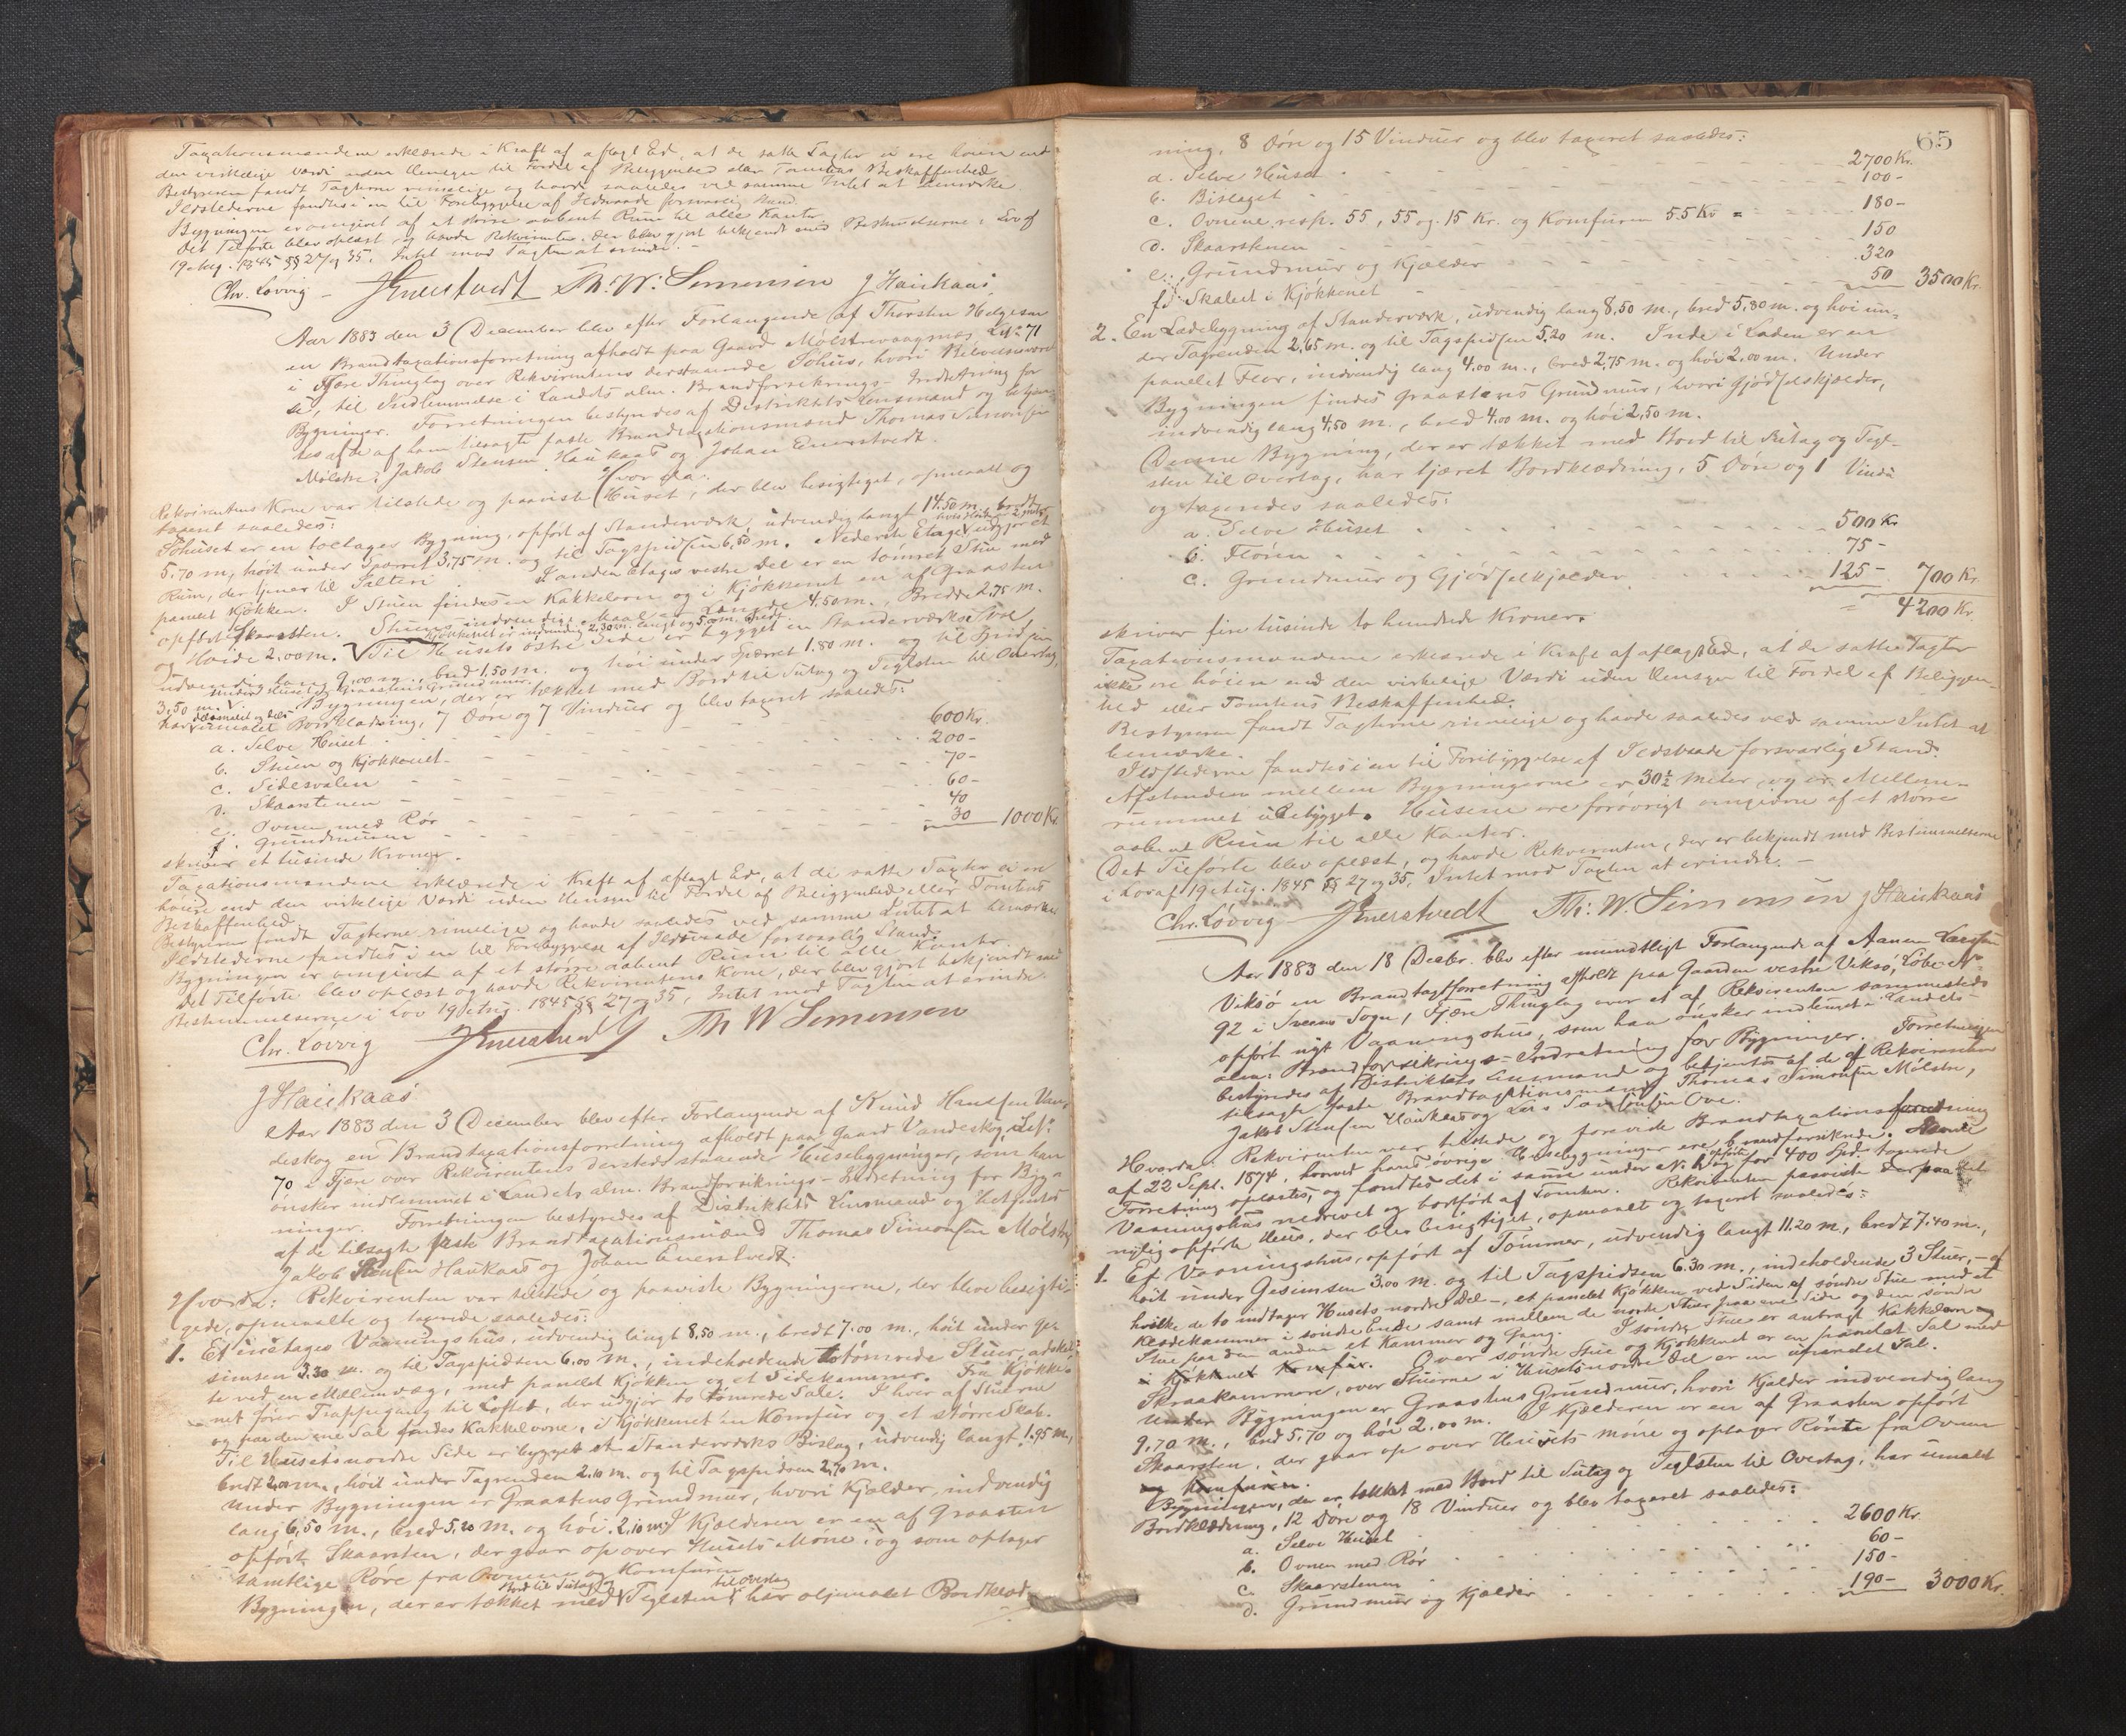 Taxationsmændene erklærede i Kraft af aflagt Ed, at de satte Taxter ei ere høiere end
den virkelige Værdi uden Hensyn til Fordel af Beliggenhed eller Tomtens Beskaffenhed
Bestyreren fandt Taxterne rimelige og havde saaledes ved samme Intet at bemærke
Ildstederne fandtes i en til Forebyggelse af Ildsvaade forsvarlig Stand.
Bygningen er omgivet af et større aabent Rum til alle Kanter
Det Tilførte blev oplæst og havde Rekvirenten, der blev gjort bekjendt med Bestemmelserne i Lov af
19 Aug. 1845 §§ 27 og 35, Intet mod Taxten at erindre. -
Chr. Lovvig - J Enerstvedt Th. W. Simonsen J Haukaas
Aar 1883 den 3 December blev efter Forlangende af Thorsten Helgesen
en Brandtaxationsforretning afholdt paa Gaard Mølstrevaagnæs, Lø№ 71
i Fjære Thinglag over Rekvirentens derstaaende Søhus, hvori Beboelsesværel
se, til Indlemmelse i Landets alm. Brandforsikrings-Indretning for
Bygninger. Forretningen bestyredes af Distriktets Lensmand og betjen-
tes af de af ham tilsagte faste Brandtaxationsmænd Thomas Simonsen
Mølstre, Jakob Stensen Haukaas og Johan Enerstvedt.
Hvorda:
Rekvirentens Kone var tilstede og paaviste Huset, der blev besigtiget, opmaalt og
taxeret saaledes:
Søhuset er en toetages Bygning, opført af Standerværk, udvendig langt 14.50 m., bredt
5.70 m, høit under Sparret 3,75 m. og til Tagspidsen 6,50 m. Nederste Etage udgjør et
Rum, der tjener til Salteri. I anden Etages vestre Del er en tømret Stue med
panelet Kjøkken. I Stuen findes en Kakkelovn og i Kjøkkenet en af Graasten
opført Skaarsten. Stuens indvendige Maal er Længde 4,50 m., Bredde 2,75 m.
Kjøkkenet er indvendig 2,30 m. langt og 5,00 m. bredt.
og Høide 2,00 m. Til Husets østre Side er bygget en Standerværks Sval
udvendig lang 9,00 m., bred 1,50 m. og høi under Sparret 1.80 m. og til Spidsen
under Huset er Graastens Grundmur
3,50 m. Bygningen, der er tækket med Bord til Sutag og Teglsten til Overtag,
delsmalet og dels
har umalet Bordklædning, 7 Døre og 7 Vinduer og blev taxeret saaledes:
a. Selve Huset 600 Kr.
b. Stuen og Kjøkkenet 200 -
c. Sidesvalen 70 -
d. Skaarstenen 60 -
e. Ovnen med Rør 40
f. Grundmuren 30 1000 Kr.
skriver et tusinde Kroner.
Taxationsmændene erklærede i Kraft af aflagt Ed, at de satte Taxter ei ere
høiere end den virkelige Værdi uden Hensyn til Fordel af Beliggenhed eller Tomtens
Beskaffenhed
Bestyreren fandt Taxterne rimelige og havde saaledes ved samme Intet at bemærke
Ildstederne fandtes i en til Forebyggelse af Ildsvaade forsvarlig Stand.
Bygningen er omgivet af et større aabent Rum til alle Kanter.
Det Tilførte blev oplæst og havde Rekvirentens Kone, der blev gjort bekjendt med
Bestemmelserne i Lov 19 Aug. 1845 §§ 27 og 35, Intet mod Taxten at erindre.
Chr. Lovvig J Enerstvedt Th W Simonsen
J Haukaas
Aar 1883 den 3 December blev efter Forlangende af Knud Hansen Van-
deskog en Brandtaxationsforretning afholdt paa Gaard Vandeskog, Lø№
70 i Fjære over Rekvirentens dersteds staaende Husebygninger, som han
ønsker indlemmet i Landets alm. Brandforsikrings-Indretning for Byg-
ninger. Forretningen bestyredes af Distriktets Lensmand og betjentes
af de tilsagte faste Brandtaxationsmænd Thomas Simonsen Mølstre,
Jakob Stensen Haukaas og Johan Enerstvedt.
Hvorda: Rekvirenten var tilstede og paaviste Bygningerne, der bleve besigti-
gede, opmaalte og taxerede saaledes:
1. Et enetages Vaaningshus, udvendig langt 8,50 m., bredt 7.00 m., høit under Ge-
simsen 3.30 m. og til Tagspidsen 6.00 m., indeholdende to tømrede Stuer, adskil-
te ved en Mellemvæg, med panelet Kjøkken og et Sidekammer. Fra Kjøkke-
net fører Trappegang til Loftet, der udgjør to tømrede Sale. I hver af Stuerne
og paa den ene Sal findes Kakkelovne, i Kjøkkenet en Komfur og et større Skab.
Til Husets nordre Side er bygget et Standerværks Bislag, udvendig langt 1.95 m.,
bredt 2,00 m., høit under Tagrenden 2.10 m. og til Tagspidsen 2,70 m.
Under Bygningen er Graastens Grundmur, hvori Kjælder, indvendig
lang 6,50 m., bred 5,20 m. og høi 2.10 m. I Kjælderen er en af Graasten
opført Skaarsten, der gaar op over Husets Møne, og som optager
samtlige Røre fra Ovnene og Komfuren
Bord til Sutag og til Overtag
Bygningen, der er tækket med Teglsten, har oljemalet Bordklæd-
65
ning, 8 Døre og 15 Vinduer og blev taxeret saaledes:
a. Selve Huset 2700 Kr.
b. Bislaget 100 -
c. Ovnene resp. 55, 55 og 15 Kr. og Komfuren 55 Kr = 180 -
d. Skaarstenen 150
e. Grundmur og Kjælder 320
f. Skabet i Kjøkkenet 50 3500 Kr.
2. En Ladebygning af Standerværk, udvendig lang 8,50 m., bred 5,80 m. og høi un-
der Tagrenden 2,65 m. og til Tagspidsen 5.20 m. Inde i Laden er en
panelet Flor, indvendig lang 4.00 m., bred 2,75 m. og høi 2.00 m. Under
Bygningen findes Graastens Grundmur, hvori Gjødselskjælder,
indvendig lang 4,50 m., bred 4.00 m. og høi 2,50 m.
Denne Bygning, der er tækket med Bord til Sutag og Tegl-
sten til Overtag, har tjæret Bordklædning, 5 Døre og 1 Vindu
og taxeredes saaledes:
a. Selve Huset 500 Kr
b. Floren 75 -
c. Grundmur og Gjødselkjælder 125 - 700 Kr.
= 4200 Kr
skriver fire tusinde to hundrede Kroner.
Taxationsmændene erklærede i Kraft af aflagt Ed, at de satte Taxter
ikke ere høiere end den virkelige Værdi uden Hensyn til Fordel af Beliggen-
hed eller Tomtens Beskaffenhed.
Bestyreren fandt Taxterne rimelige og havde saaledes ved samme Intet at
bemærke.
Ildstederne fandtes i en til Forebyggelse af Ildsvaade forsvarlig Stand.
Afstanden mellem Bygningerne er 30½ Meter, og er Mellem-
rummet ubebygget. Husene ere forøvrigt omgivne af et større
aabent Rum til alle Kanter.
Det Tilførte blev oplæst, og havde Rekvirenten, der er bekjendt med Bestemmelserne
i Lov af 19 Aug. 1845 §§ 27 og 35, Intet mod Taxten at erindre. -
Chr. Lovvig J Enerstvedt Th: W. Simonsen J Haukaas
Aar 1883 den 18 Decbr. blev efter mundtligt Forlangende af Aanen Larsen
Viksø en Brandtaxtforretning afholdt paa Gaarden vestre Viksø, Løbe №
92 i Sveens Sogn, Fjære Thinglag over et af Rekvirenten sammesteds
opført nyt Vaaningshus, som han ønsker indlemmet i Landets
alm: Brandforsikrings-Indretning for Bygninger. Forretningen
bestyredes af Distriktets Lensmand og betjentes af de af Rekvirenten
tilsagte faste Brandtaxationsmænd Thomas Simonsen Mølstre,
Jakob Stensen Haukaas og Lars Ove.
Hvorda: Rekvirenten var tilstede og foreviste Brandtaxationsforretning
af 22 Sept. 1874, hvorved hans øvrige Husebygninger ere brandforsikrede.
Forretning oplæstes, og fandtes det i samme under № 1 opførte og for 400 Spd. taxerede
Vaaningshus nedrevet og bortført af Tomten. Rekvirenten paaviste derpaa det
nylig opførte Hus, der blev besigtiget, opmaalt og taxeret saaledes:
1. Et Vaaningshus, opført af Tømmer, udvendig langt 11.20 m., bredt 7,40 m.,
høit under Gesimsen 3.00 m. og til Tagspidsen 6.30 m., indeholdende 3 Stuer, - af
hvilke de to indtager Husets nordre Del -, et panelet Kjøkken ved Siden af søndre Stue med et
Klædekammer i søndre Ende samt mellem de nordre Stuer paa ene Side og den søndre
Stue paa den anden et Kammer og Gang. I søndre Stue er anbragt Kakkelovn og
i Kjøkkenet Komfur. Over søndre Stue og Kjøkkenet er en panelet Sal med
Skraakammere, over Stuerne i Husets nordre Del er en upanelet Sal.
Under Bygningen er Graastens Grundmur, hvori Kjælder indvendig lang
9.70 m., bred 5.70 og høi 2.00 m. I Kjælderen er en af Graasten opført
Skaarsten, der gaar op over Husets Møne og optager Rørene fra Ovnen
og Komfuren.
Bygningen, der er tækket med Bord til Sutag og Teglsten til Overtag, har umalet
Bordklædning, 12 Døre og 18 Vinduer og blev taxeret saaledes:
a. Selve Huset 2600 Kr.
b. Ovnen med Rør 60 -
c. Skaarstenen 150 -
d. Grundmur og Kjælder 190 - 3000 Kr.